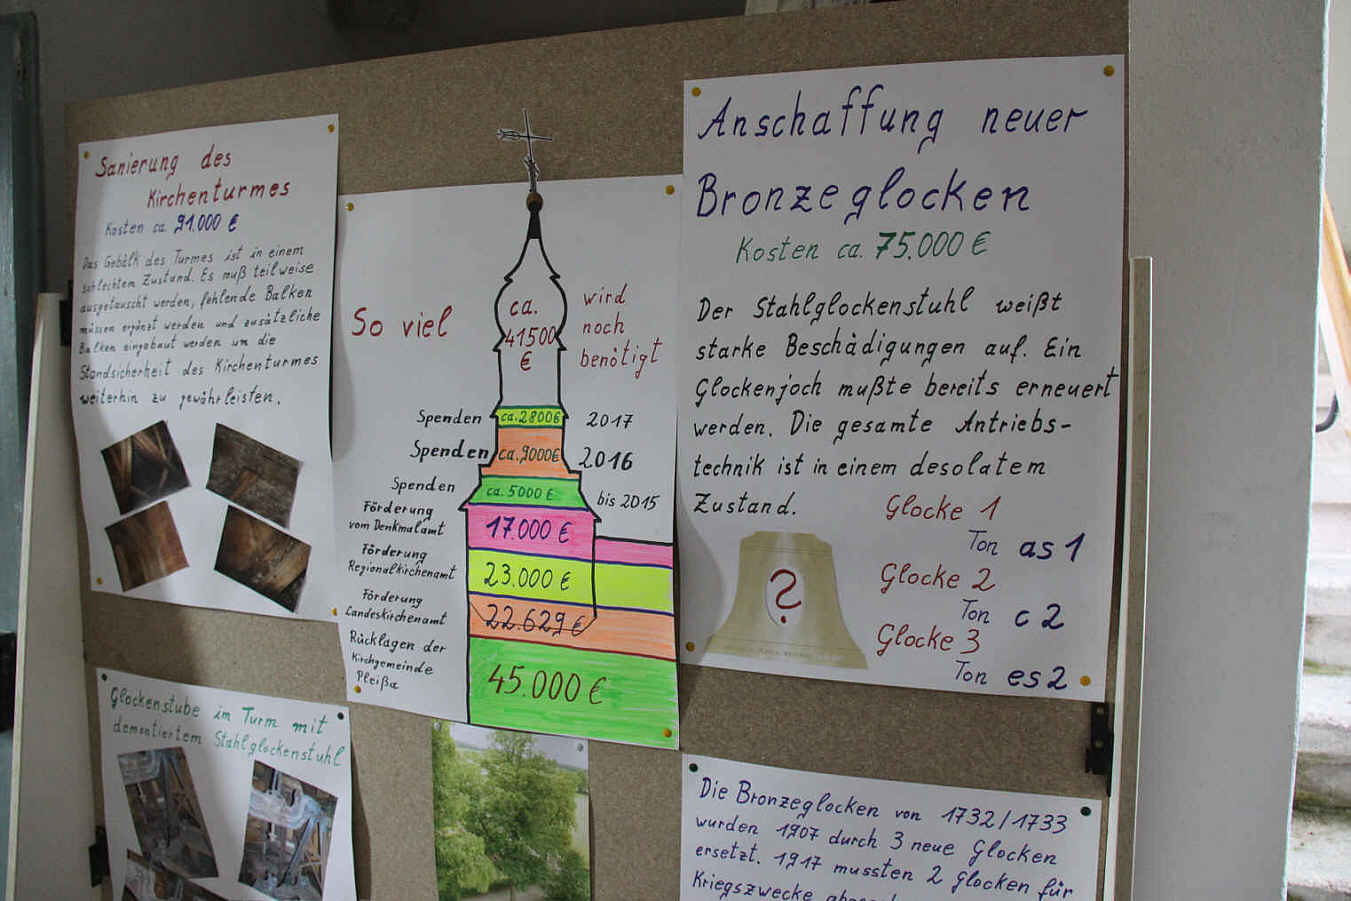 Sanierung des
Kirchenturmes
Kosten ca. 91.000 €
Das Gebälk des Turmes ist in einem
schlechtem Zustand. Es muß teilweise
ausgetauscht werden, fehlende Balken
müssen ergänzt werden und zusätzliche
Balken eingebaut werden um die
Standsicherheit des Kirchenturmes
weiterhin zu gewährleisten.
So viel
ca.
41500
€
wird
noch
benötigt
Spenden ca. 2800€ 2017
Spenden ca. 9000€ 2016
Spenden ca. 5000 € bis 2015
Förderung
vom Denkmalamt
17.000 €
Förderung
Regionalkirchenamt
23.000 €
Förderung
Landeskirchenamt
22.629 €
Rücklagen der
Kirchgemeinde
Pleißa
45.000 €
Anschaffung neuer
Bronzeglocken
Kosten ca. 75.000 €
Der Stahlglockenstuhl weißt
starke Beschädigungen auf. Ein
Glockenjoch mußte bereits erneuert
werden. Die gesamte Antriebs-
technik ist in einem desolatem
Zustand.
?
Glocke 1
Ton as1
Glocke 2
Ton c2
Glocke 3
Ton es2
Glockenstube im Turm mit
demontiertem Stahlglockenstuhl
Die Bronzeglocken von 1732/1733
wurden 1907 durch 3 neue Glocken
ersetzt. 1917 mussten 2 Glocken für
Kriegszwecke